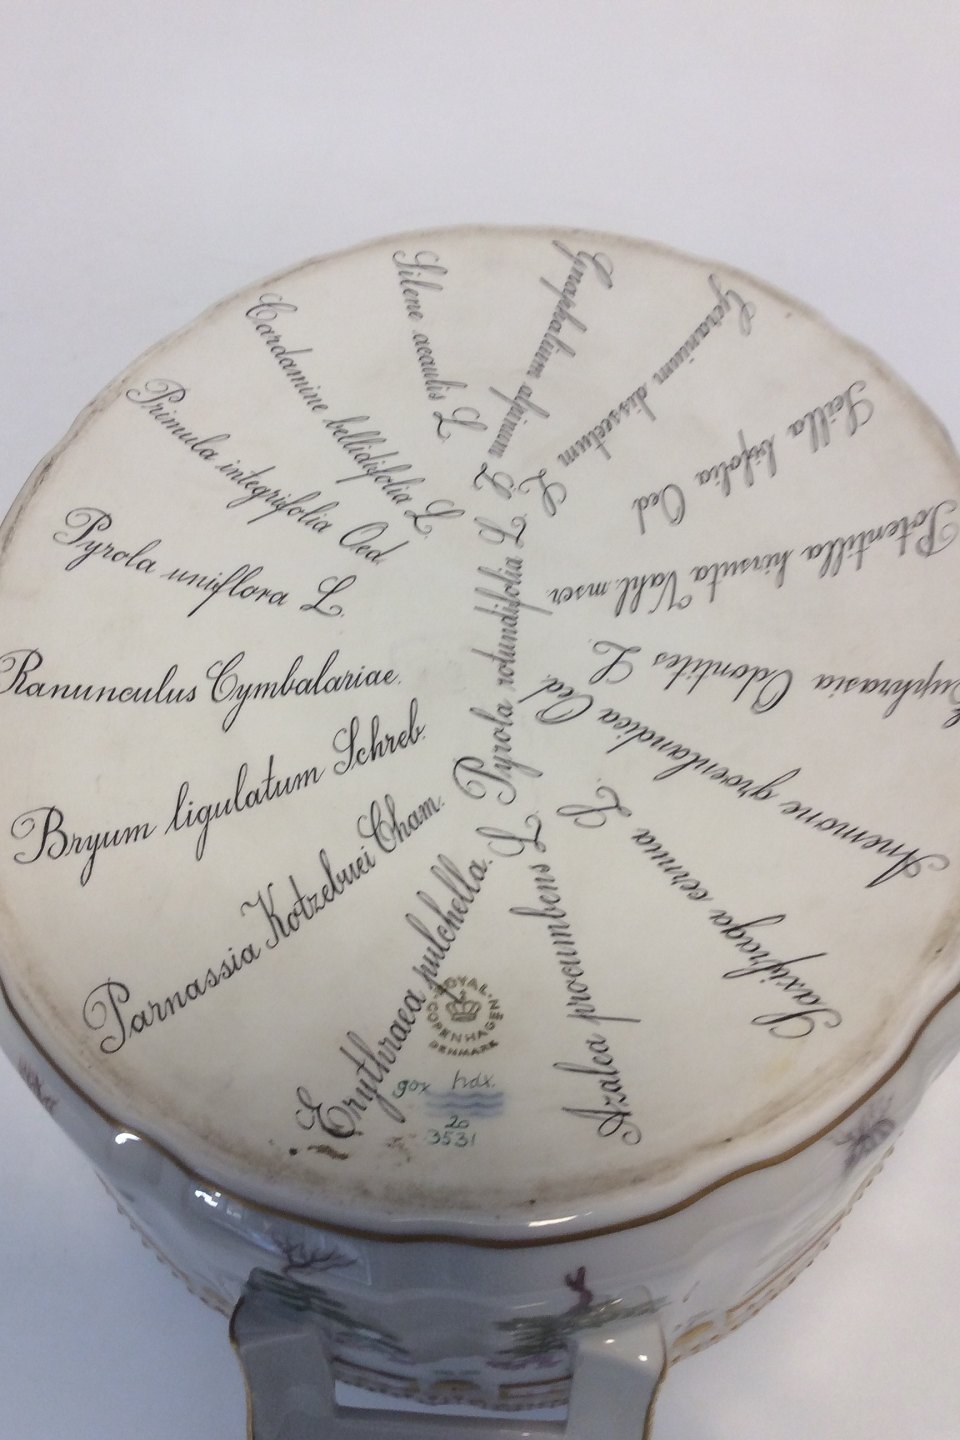 Silene acaulis L.
Gnaphalium alpinum L.
Geranium dissectum L
Scilla bifolia Oed
Potentilla hirsuta Vahl. mscr.
Euphrasia Odontites L.
Anemone groenlandica Oed.
Saxifraga cernua L
Azalea procumbens L
Erythraea pulchella.
Parnassia Kotzebuei Cham.
Bryum ligulatum Schreb.
Ranunculus Cymbalariae.
Pyrola uniflora L.
Primula integrifolia Oed.
Cardamine bellidifolia L.
Pyrola rotundifolia L
ROYAL COPENHAGEN
DENMARK
gox hdx.
20
3531